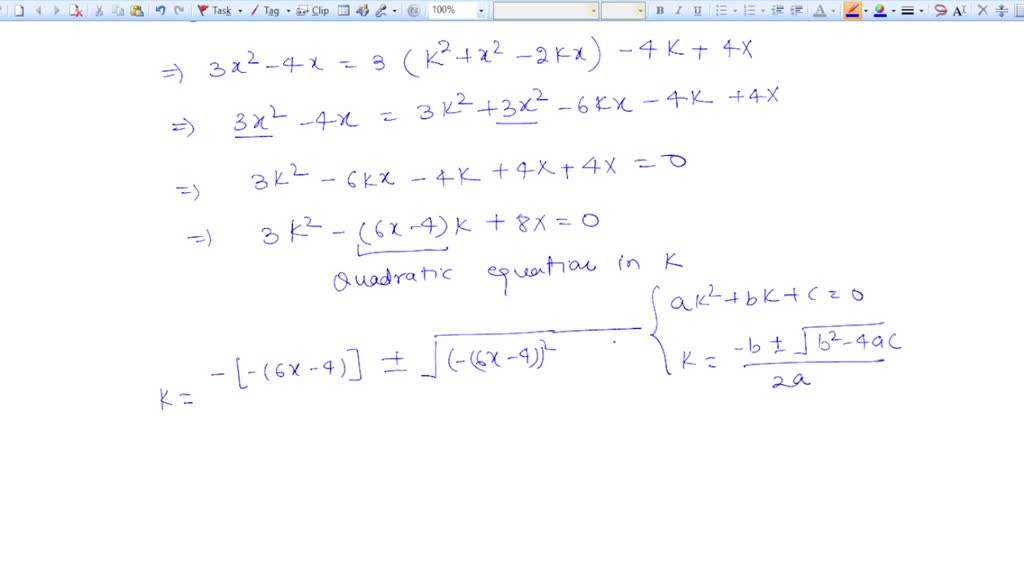 Task Tag Clip 100% B I U A A
=) 3x² - 4x = 3 (K² + x² - 2Kx) - 4K + 4X
=) 3x² - 4x = 3K² + 3x² - 6Kx - 4K + 4X
=) 3K² - 6Kx - 4K + 4X + 4X = 0
=) 3K² - (6x - 4)K + 8X = 0
Quadratic equation in K
aK² + bK + C = 0
K = -[-(6x - 4)] ± √(-(6x - 4))²
K = -b ± √b² - 4aC / 2a